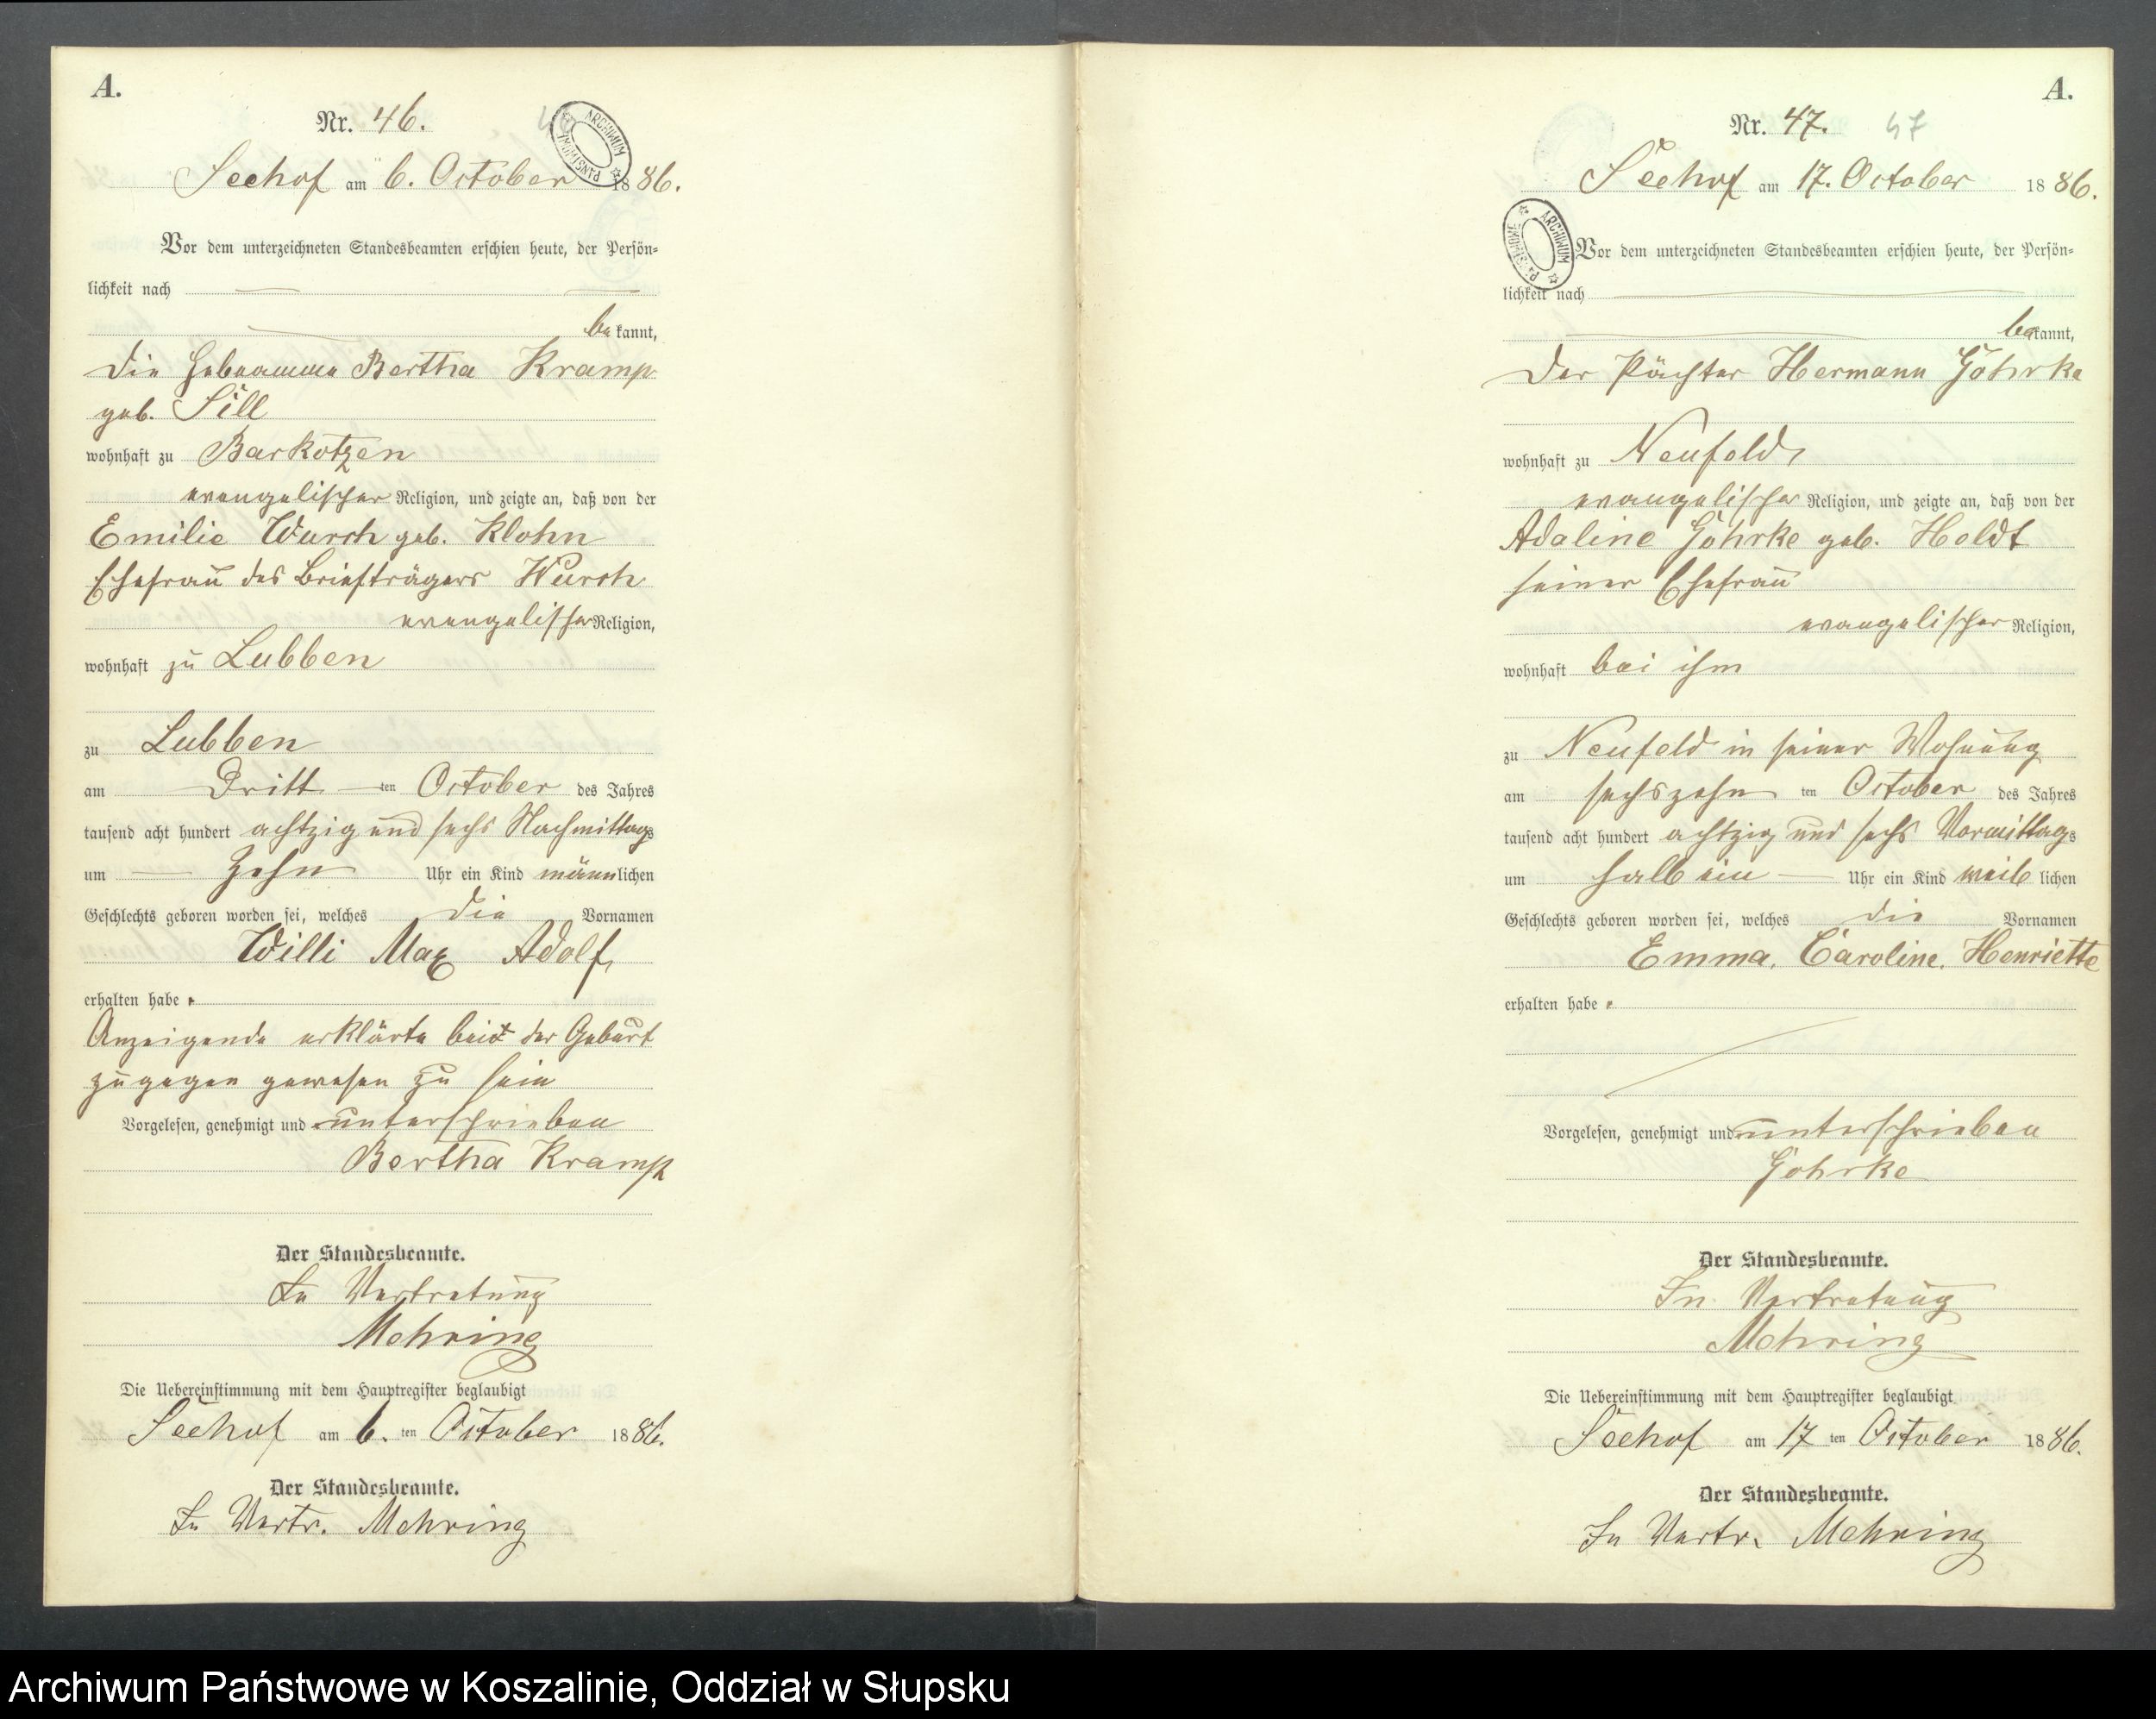 A.
Nr. 46.
46
ARCHIWUM PAŃSTWOWE
Seehof am 6. October 1886.
Vor dem unterzeichneten Standesbeamten erschien heute, der Persön=
lichkeit nach
be kannt,
die Hebeamme Bertha Kramp
geb. Sill
wohnhaft zu Barkotzen
evangelischer Religion, und zeigte an, daß von der
Emilie Wursch geb. Klohn
Ehefrau des Briefträgers Wursch
evangelischer Religion,
wohnhaft zu Lubben
zu Lubben
am Dritt ten October des Jahres
tausend acht hundert achtzig und sechs Nachmittags
um Zehn Uhr ein Kind männlichen
Geschlechts geboren worden sei, welches die Vornamen
Willi Max Adolf,
erhalten habe.
Anzeigende erklärte bei der Geburt
zugegen gewesen zu sein
Vorgelesen, genehmigt und unterschrieben
Bertha Kramp
Der Standesbeamte.
In Vertretung
Mehring
Die Uebereinstimmung mit dem Hauptregister beglaubigt
Seehof am 6. ten October 1886.
Der Standesbeamte.
In Vertr. Mehring
A.
Nr. 47.
47
Seehof am 17. October 1886.
ARCHIWUM PAŃSTWOWE
Vor dem unterzeichneten Standesbeamten erschien heute, der Persön=
lichkeit nach
bekannt,
der Pächter Hermann Göhrke
wohnhaft zu Neufeld,
evangelischer Religion, und zeigte an, daß von der
Adaline Göhrke geb. Holdt
seiner Ehefrau
evangelischer Religion,
wohnhaft bei ihm
zu Neufeld in seiner Wohnung
am sechszehn ten October des Jahres
tausend acht hundert achtzig und sechs Vormittags
um halb ein Uhr ein Kind weib lichen
Geschlechts geboren worden sei, welches die Vornamen
Emma, Caroline, Henriette
erhalten habe.
Vorgelesen, genehmigt und unterschrieben
Göhrke
Der Standesbeamte.
In Vertretung
Mehring
Die Uebereinstimmung mit dem Hauptregister beglaubigt
Seehof am 17 ten October 1886.
Der Standesbeamte.
In Vertr. Mehring
Archiwum Państwowe w Koszalinie, Oddział w Słupsku